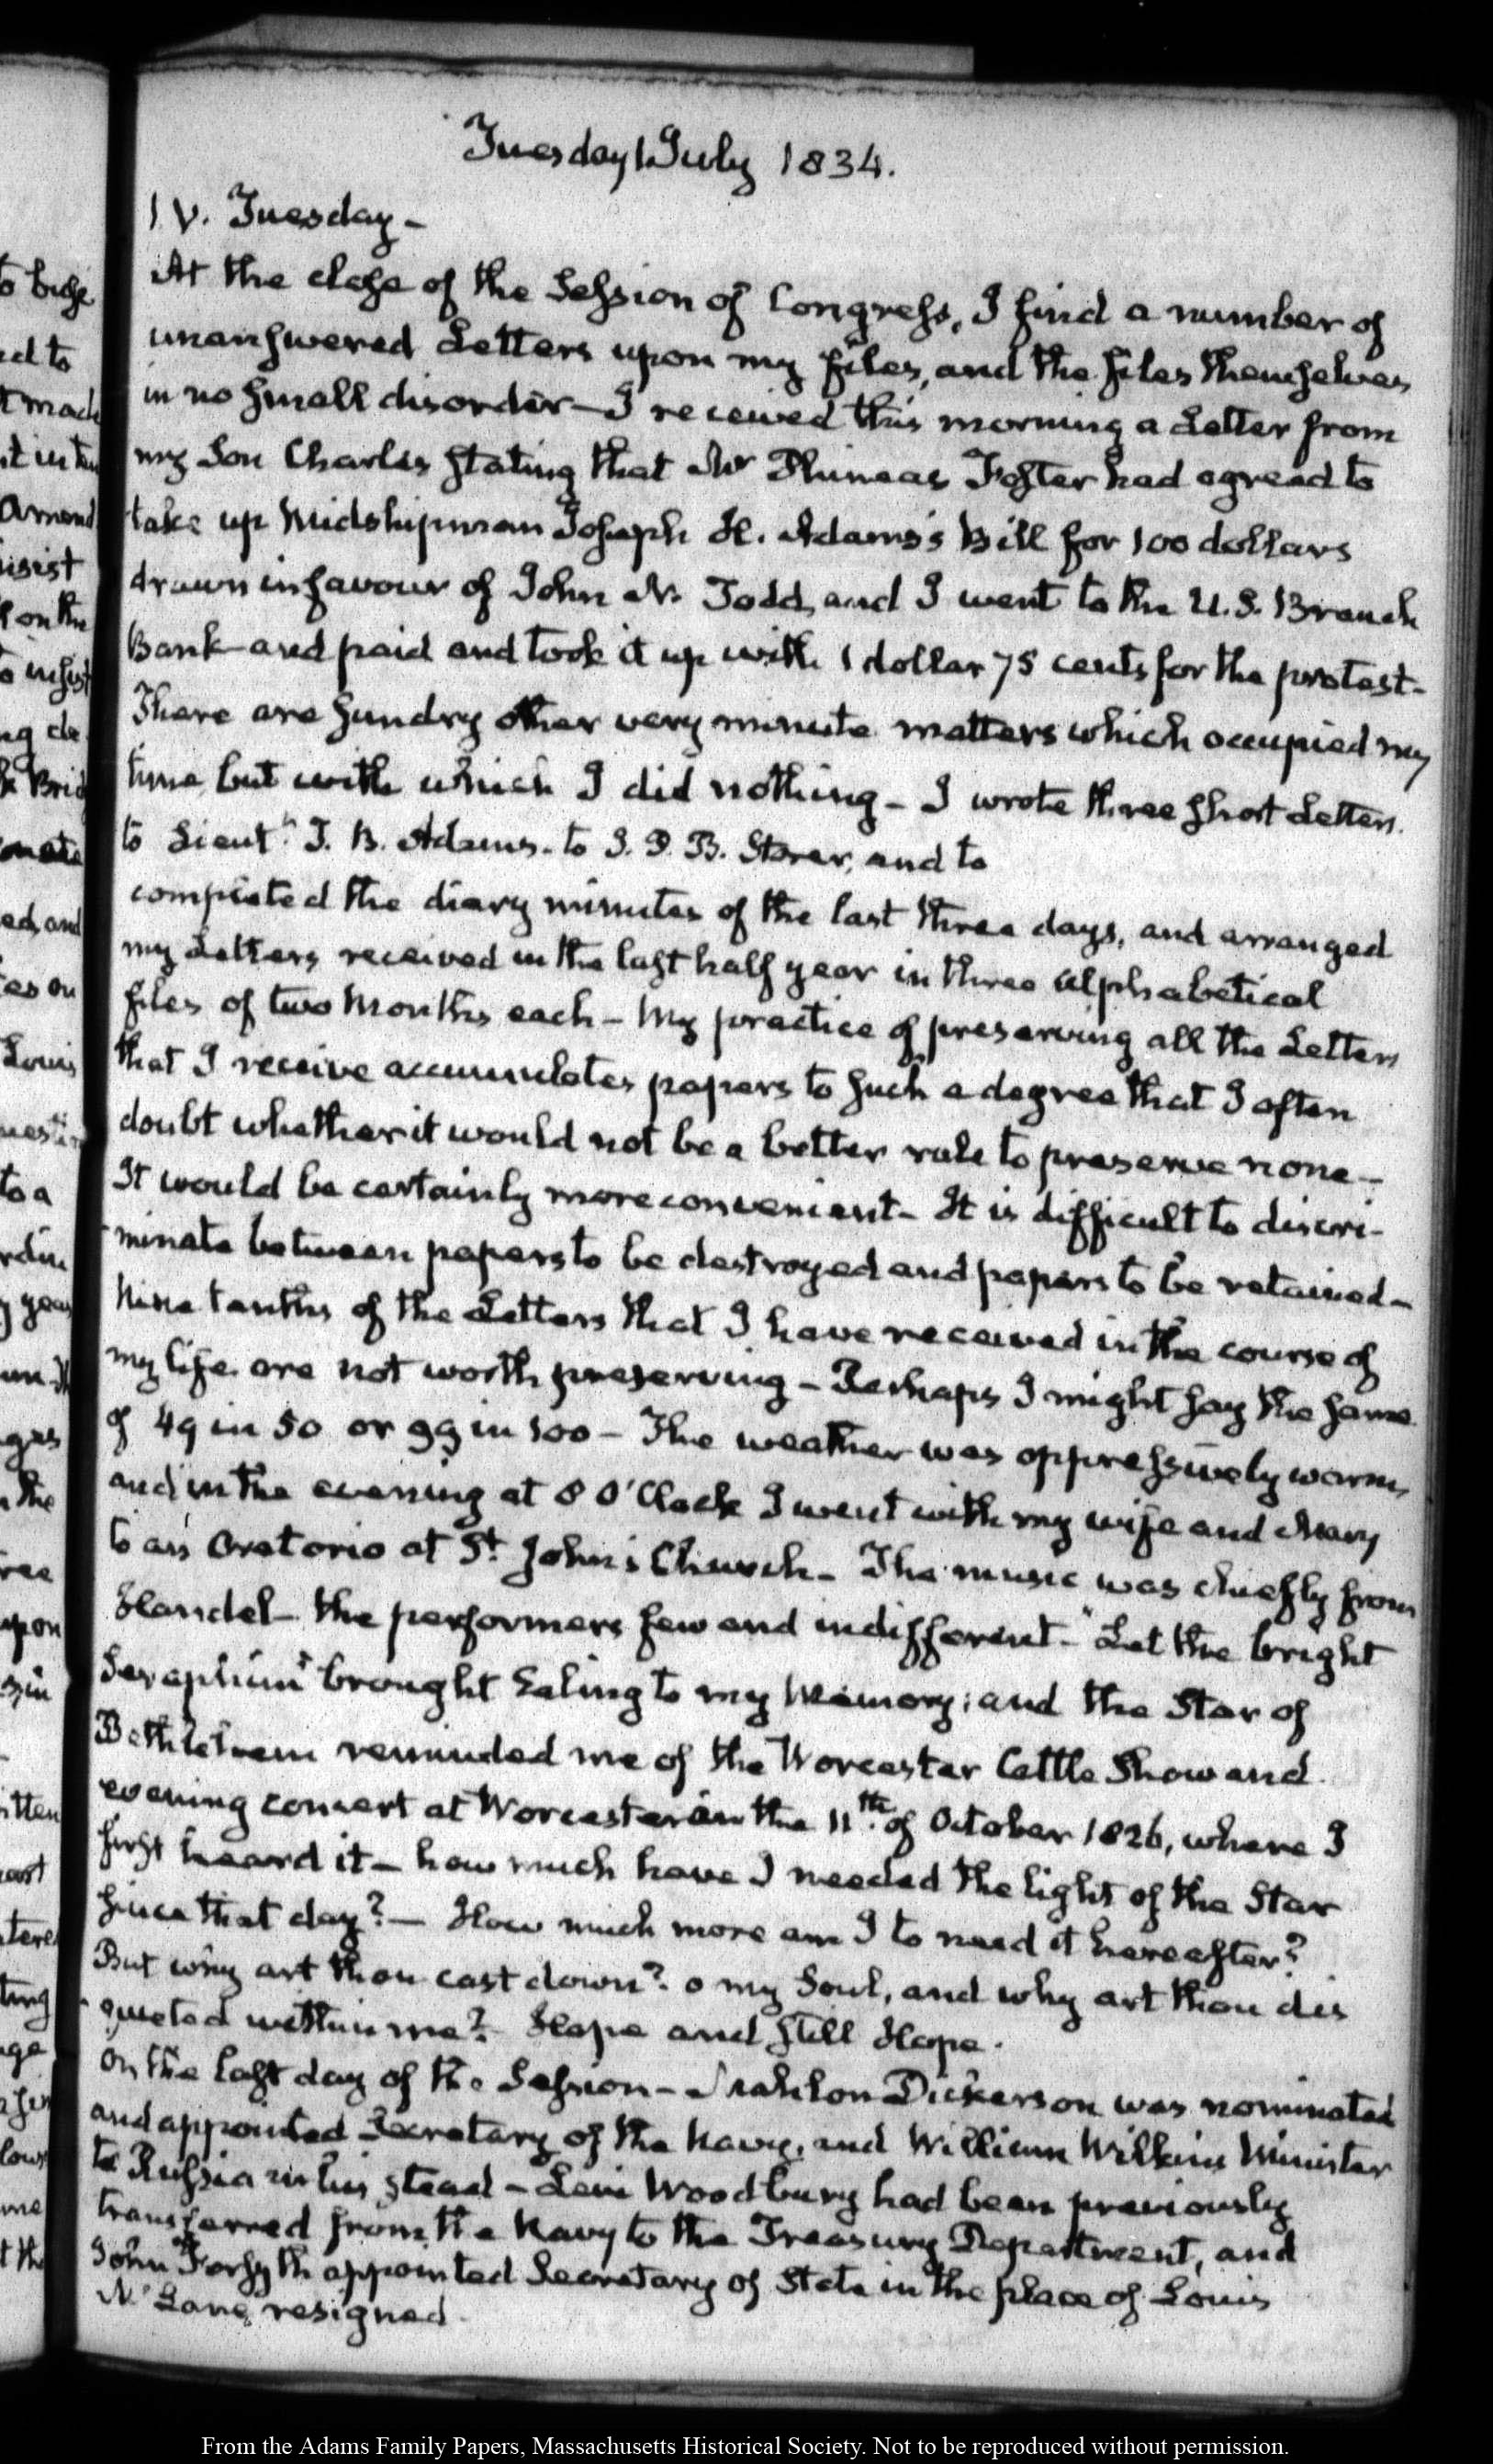 Tuesday 1 July 1834.
1 V. Tuesday –
At the close of the Session of Congress, I find a number of
unanswered Letters upon my files, and the files themselves
in no small disorder – I received this morning a Letter from
my Son Charles stating that Mr Phineas Foster had agreed to
take up Midshipman Joseph H. Adams's Bill for 100 dollars
drawn in favour of John N. Todd, and I went to the U.S. Branch
Bank and paid and took it up with 1 dollar 75 cents for the protest –
There are sundry other very minute matters which occupied my
time but with which I did nothing – I wrote three short Letters.
to Lieut. T. B. Adams. to S. D. B. Storer, and to
completed the diary minutes of the last three days, and arranged
my Letters received in the last half year in three alphabetical
files of two Months each – My practice of preserving all the Letters
that I receive accumulates papers to such a degree that I often
doubt whether it would not be a better rule to preserve none –
It would be certainly more convenient – It is difficult to discri-
minate between papers to be destroyed and papers to be retained –
Nine tenths of the Letters that I have received in the course of
my life are not worth preserving – Perhaps I might say the same
of 49 in 50 or 99 in 100 – The weather was oppressively warm,
and in the evening at 8 O'Clock I went with my wife and Mary
to an Oratorio at St. John's Church – The music was chiefly from
Handel – the performers few and indifferent – "Let the bright
Seraphim" brought Ealing to my Memory; and the Star of
Bethlehem reminded me of the Worcester Cattle Show and
evening concert at Worcester on the 11th. of October 1826, where I
first heard it – how much have I needed the light of the Star
since that day? – How much more am I to need it hereafter?
But why art thou cast down? o my Soul, and why art thou dis
quieted within me? Hope and still Hope.
On the last day of the Session – Mahlon Dickerson was nominated
and appointed Secretary of the Navy, and William Wilkins Minister
to Russia in his stead – Levi Woodbury had been previously
transferred from the Navy to the Treasury Department, and
John Forsyth appointed Secretary of State in the place of Louis
Mc Lane resigned.
From the Adams Family Papers, Massachusetts Historical Society. Not to be reproduced without permission.